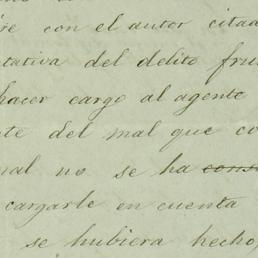 re con el autor citad
tativa del delito frus
hacer cargo al agente
te del mal que co
nal no se ha cons
cargarle en cuenta
se hubiera hecho,